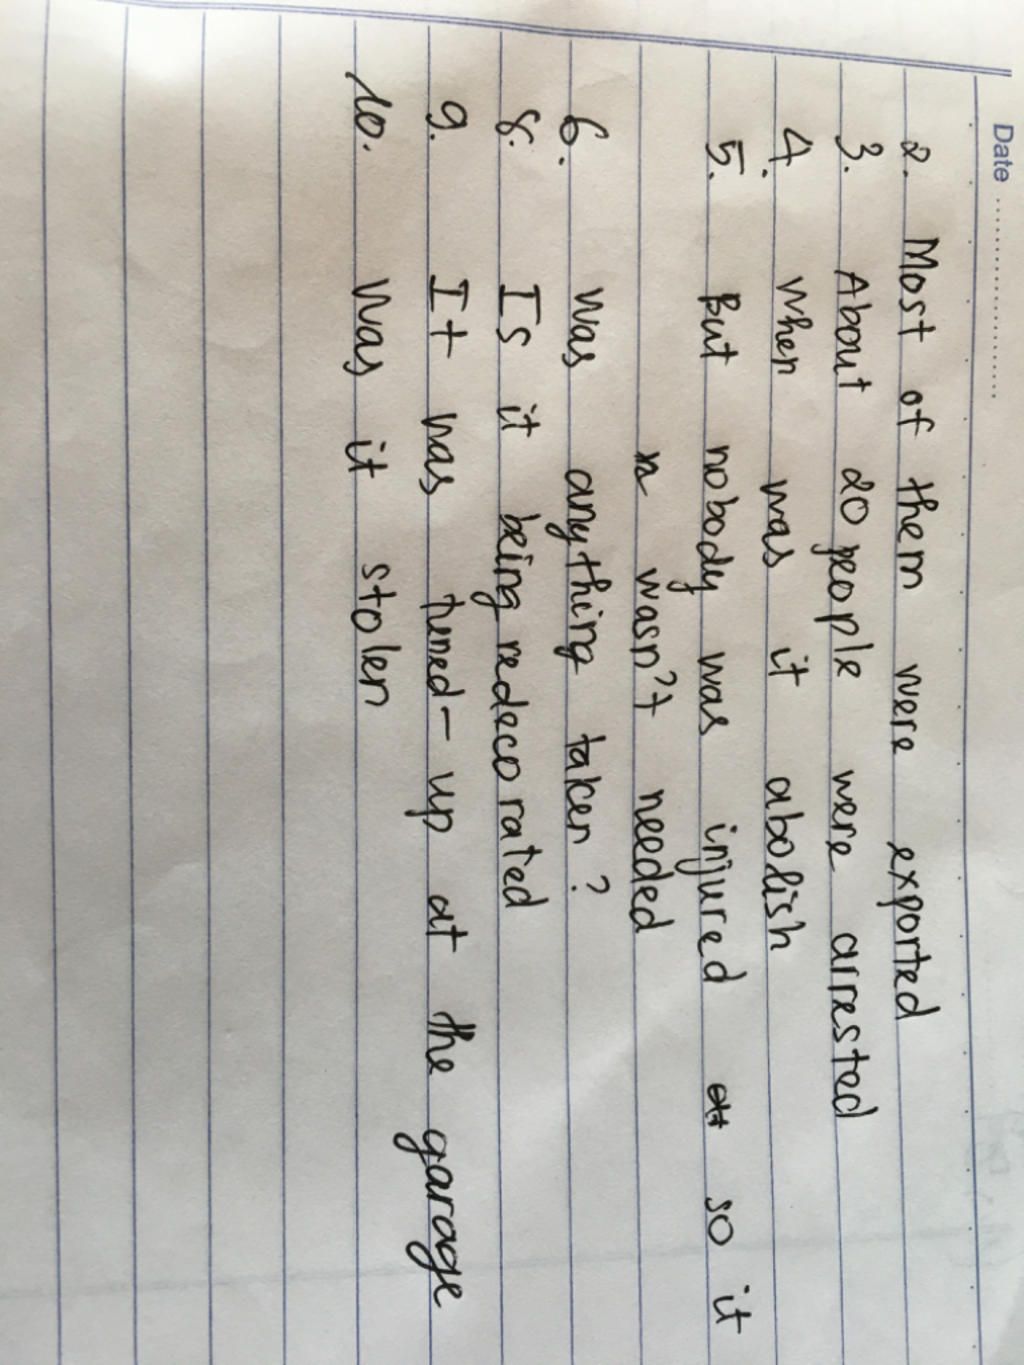 Date ....................
2. Most of them were exported
3. About 20 people were arrested
4. When was it abolish
5. But nobody was injured so it
wasn't needed
6. was anything taken?
8. Is it being redecorated
9. It was tuned-up at the garage
10. Was it stolen